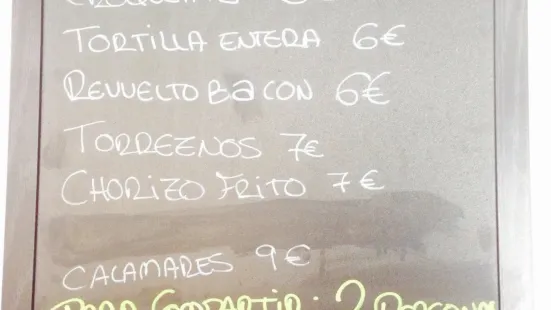 TORTILLA ENTERA 6€
REVUELTO BACON 6€
TORREZNOS 7€
CHORIZO FRITO 7€
CALAMARES 9€
PARA COMPARTIR: 2 PERSONAS